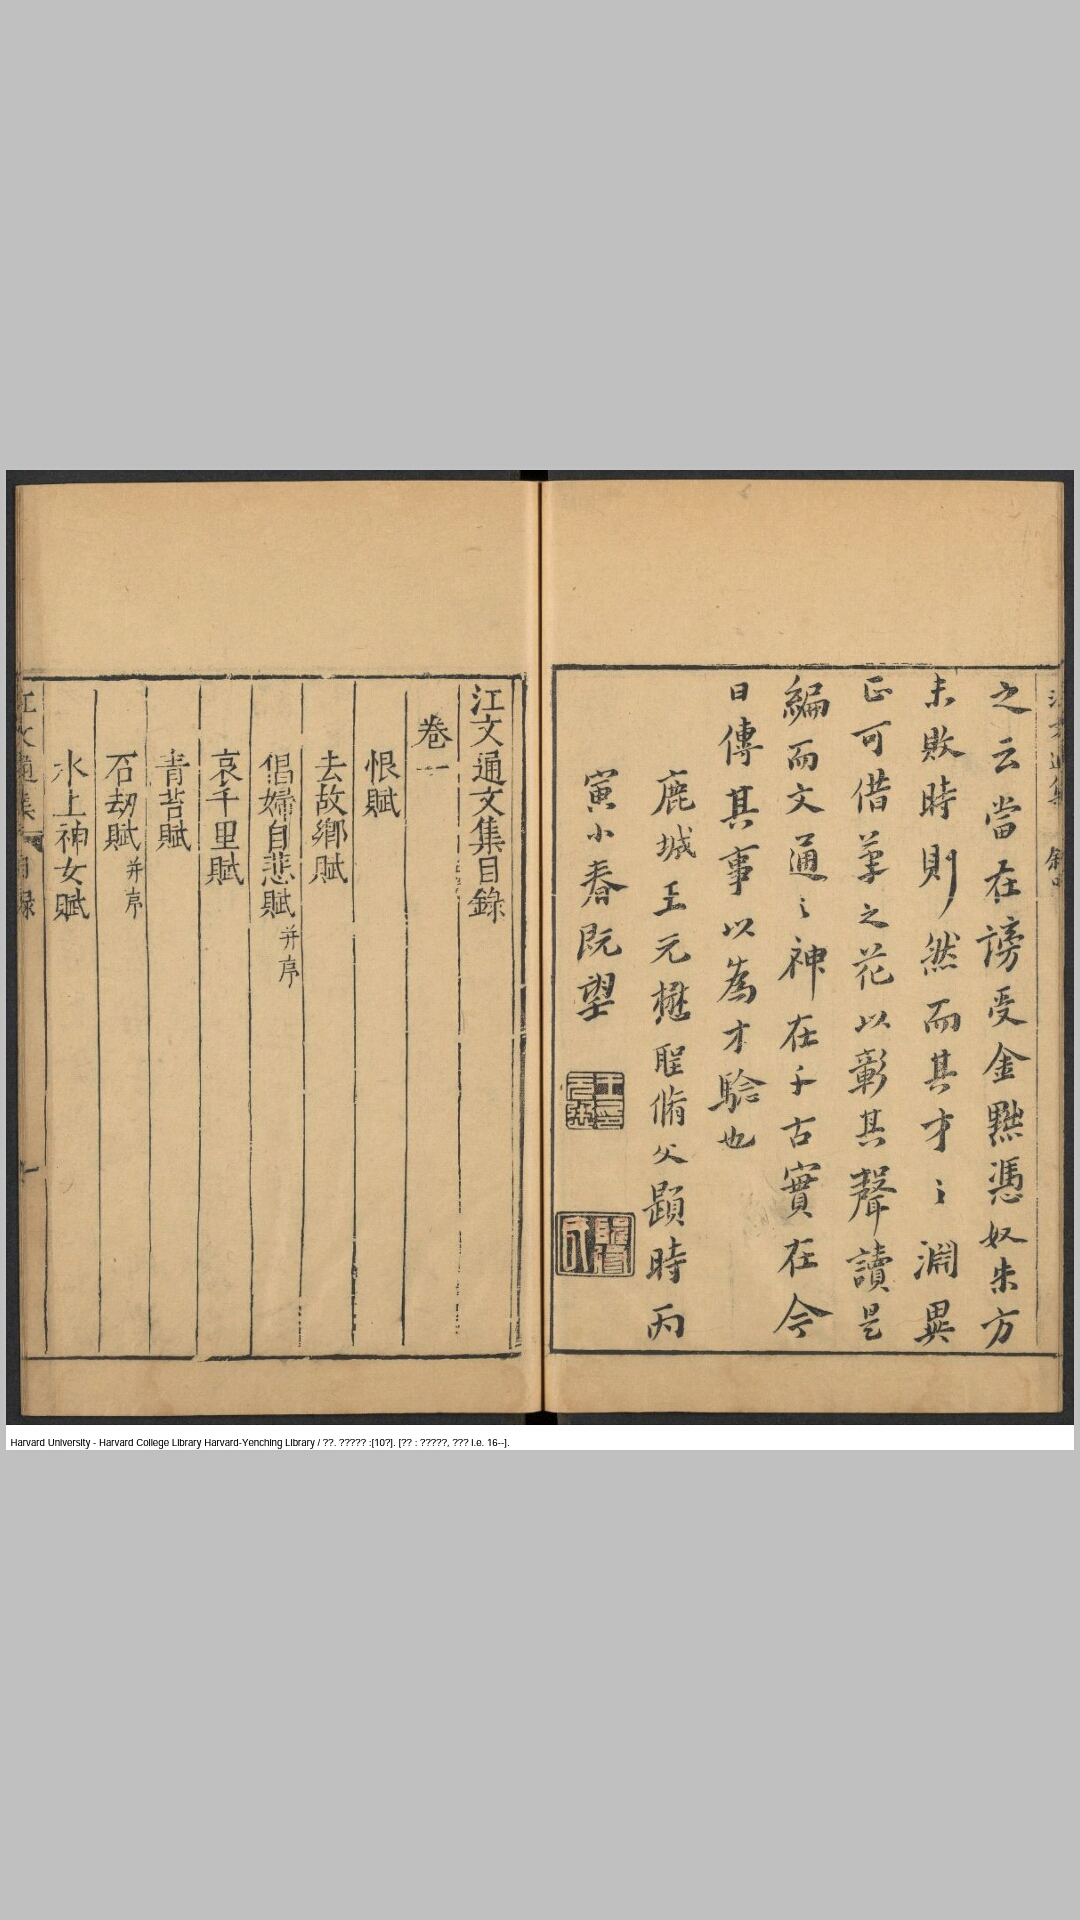 之云當在謗受金黥憑奴朱方
未敗時則然而其才〻淵異
正可借筆之花以彰其聲讀是
編而文通〻神在千古實在今
日傳其事以為才騐也
鹿城王元懋聖脩父題時丙
寅小春既望
江文通文集目錄
卷一
恨賦
去故鄉賦
倡婦自悲賦 并序
哀千里賦
青苔賦
石劫賦 并序
水上神女賦
江文通集 目錄 一
Harvard University - Harvard College Library Harvard-Yenching Library / ??. ????? :[10?]. [?? : ?????, ??? i.e. 16--].